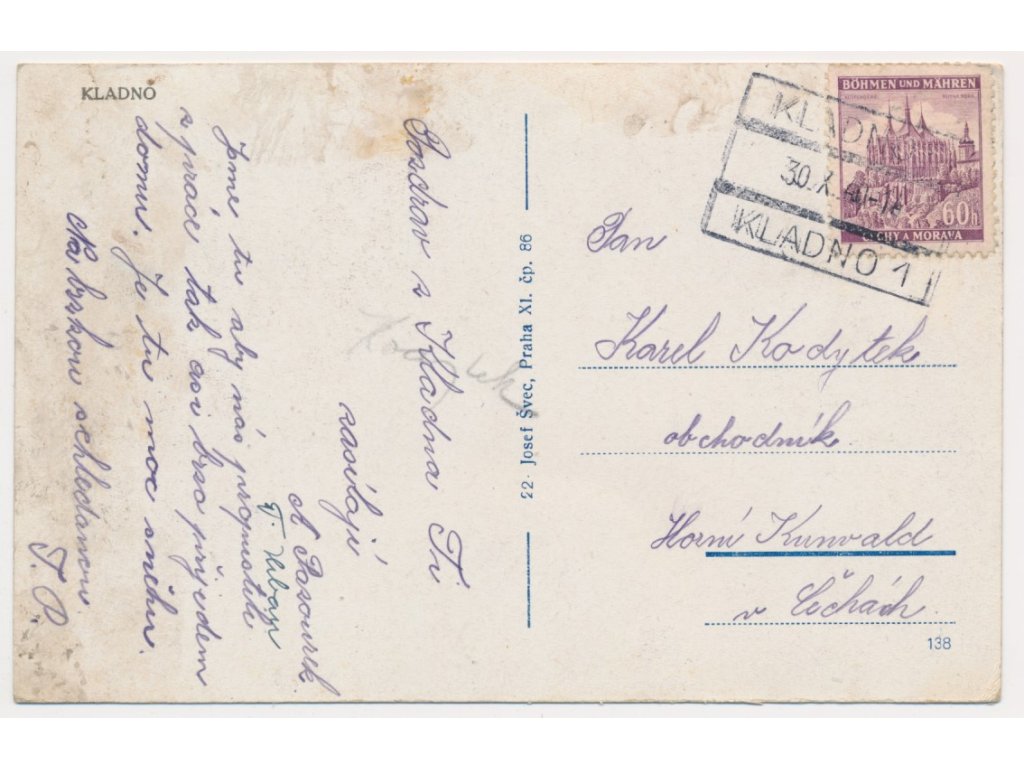 KLADNO
Pozdrav z Kladna Ti
zasílají
A. Pasourek.
T. Urban
Jsme tu aby nás propustili
z práce tak asi brzo přijedem
domu. Je tu moc sněhu.
Na brzkou schledanou.
T. P.
22 · Josef Švec, Praha XI. čp. 86
BÖHMEN UND MÄHREN
60h
ČECHY A MORAVA
KLADNO
30.X.
KLADNO 1
Pan
Karel Kodytek
obchodník.
Horní Kunvald
v Čechách.
138